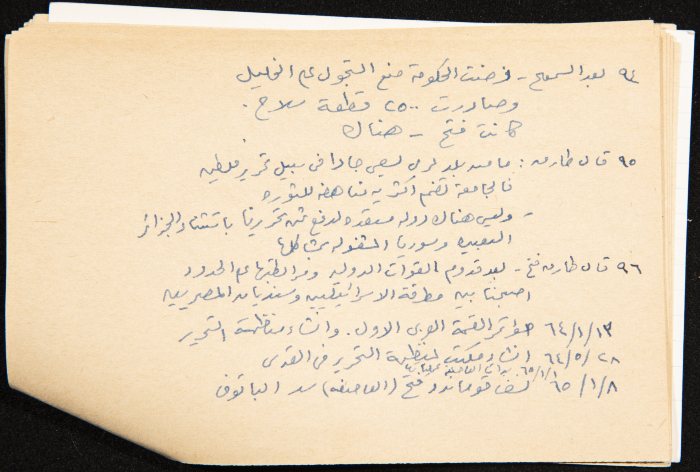 ٩٤ بعد السموع - فرضت الحكومة منع التجول على الخليل
وصادرت ٢٥٠٠ قطعة سلاح .
كانت فتح - هناك
٩٥ قال طارق : ما من بلد عربي يسعى جادا في سبيل تحرير فلسطين
فالجامعة تضم اكثرية مناهضة للثورة
- وليس هناك دولة مستعدة لدفع ثمن تحريرنا باستثناء الجزائر
البعيدة وسوريا المشغولة بمشاكلها
٩٦ قال طارق فتح - بعد قدوم القوات الدولية ومرابطتها على الحدود
اصبحنا بين مطرقة الاسرائيليين وسنديان المصريين
٦٤/١/١٣ مؤتمر القمة العربي الاول . وانشاء منظمة التحرير
٦٤/٥/٢٨ انشاء مكتب لمنظمة التحرير في القدس
٦٥/١/١ العاصفة
٦٥/١/٨ نسف قوماندو فتح (العاصفة) سد الباتوف